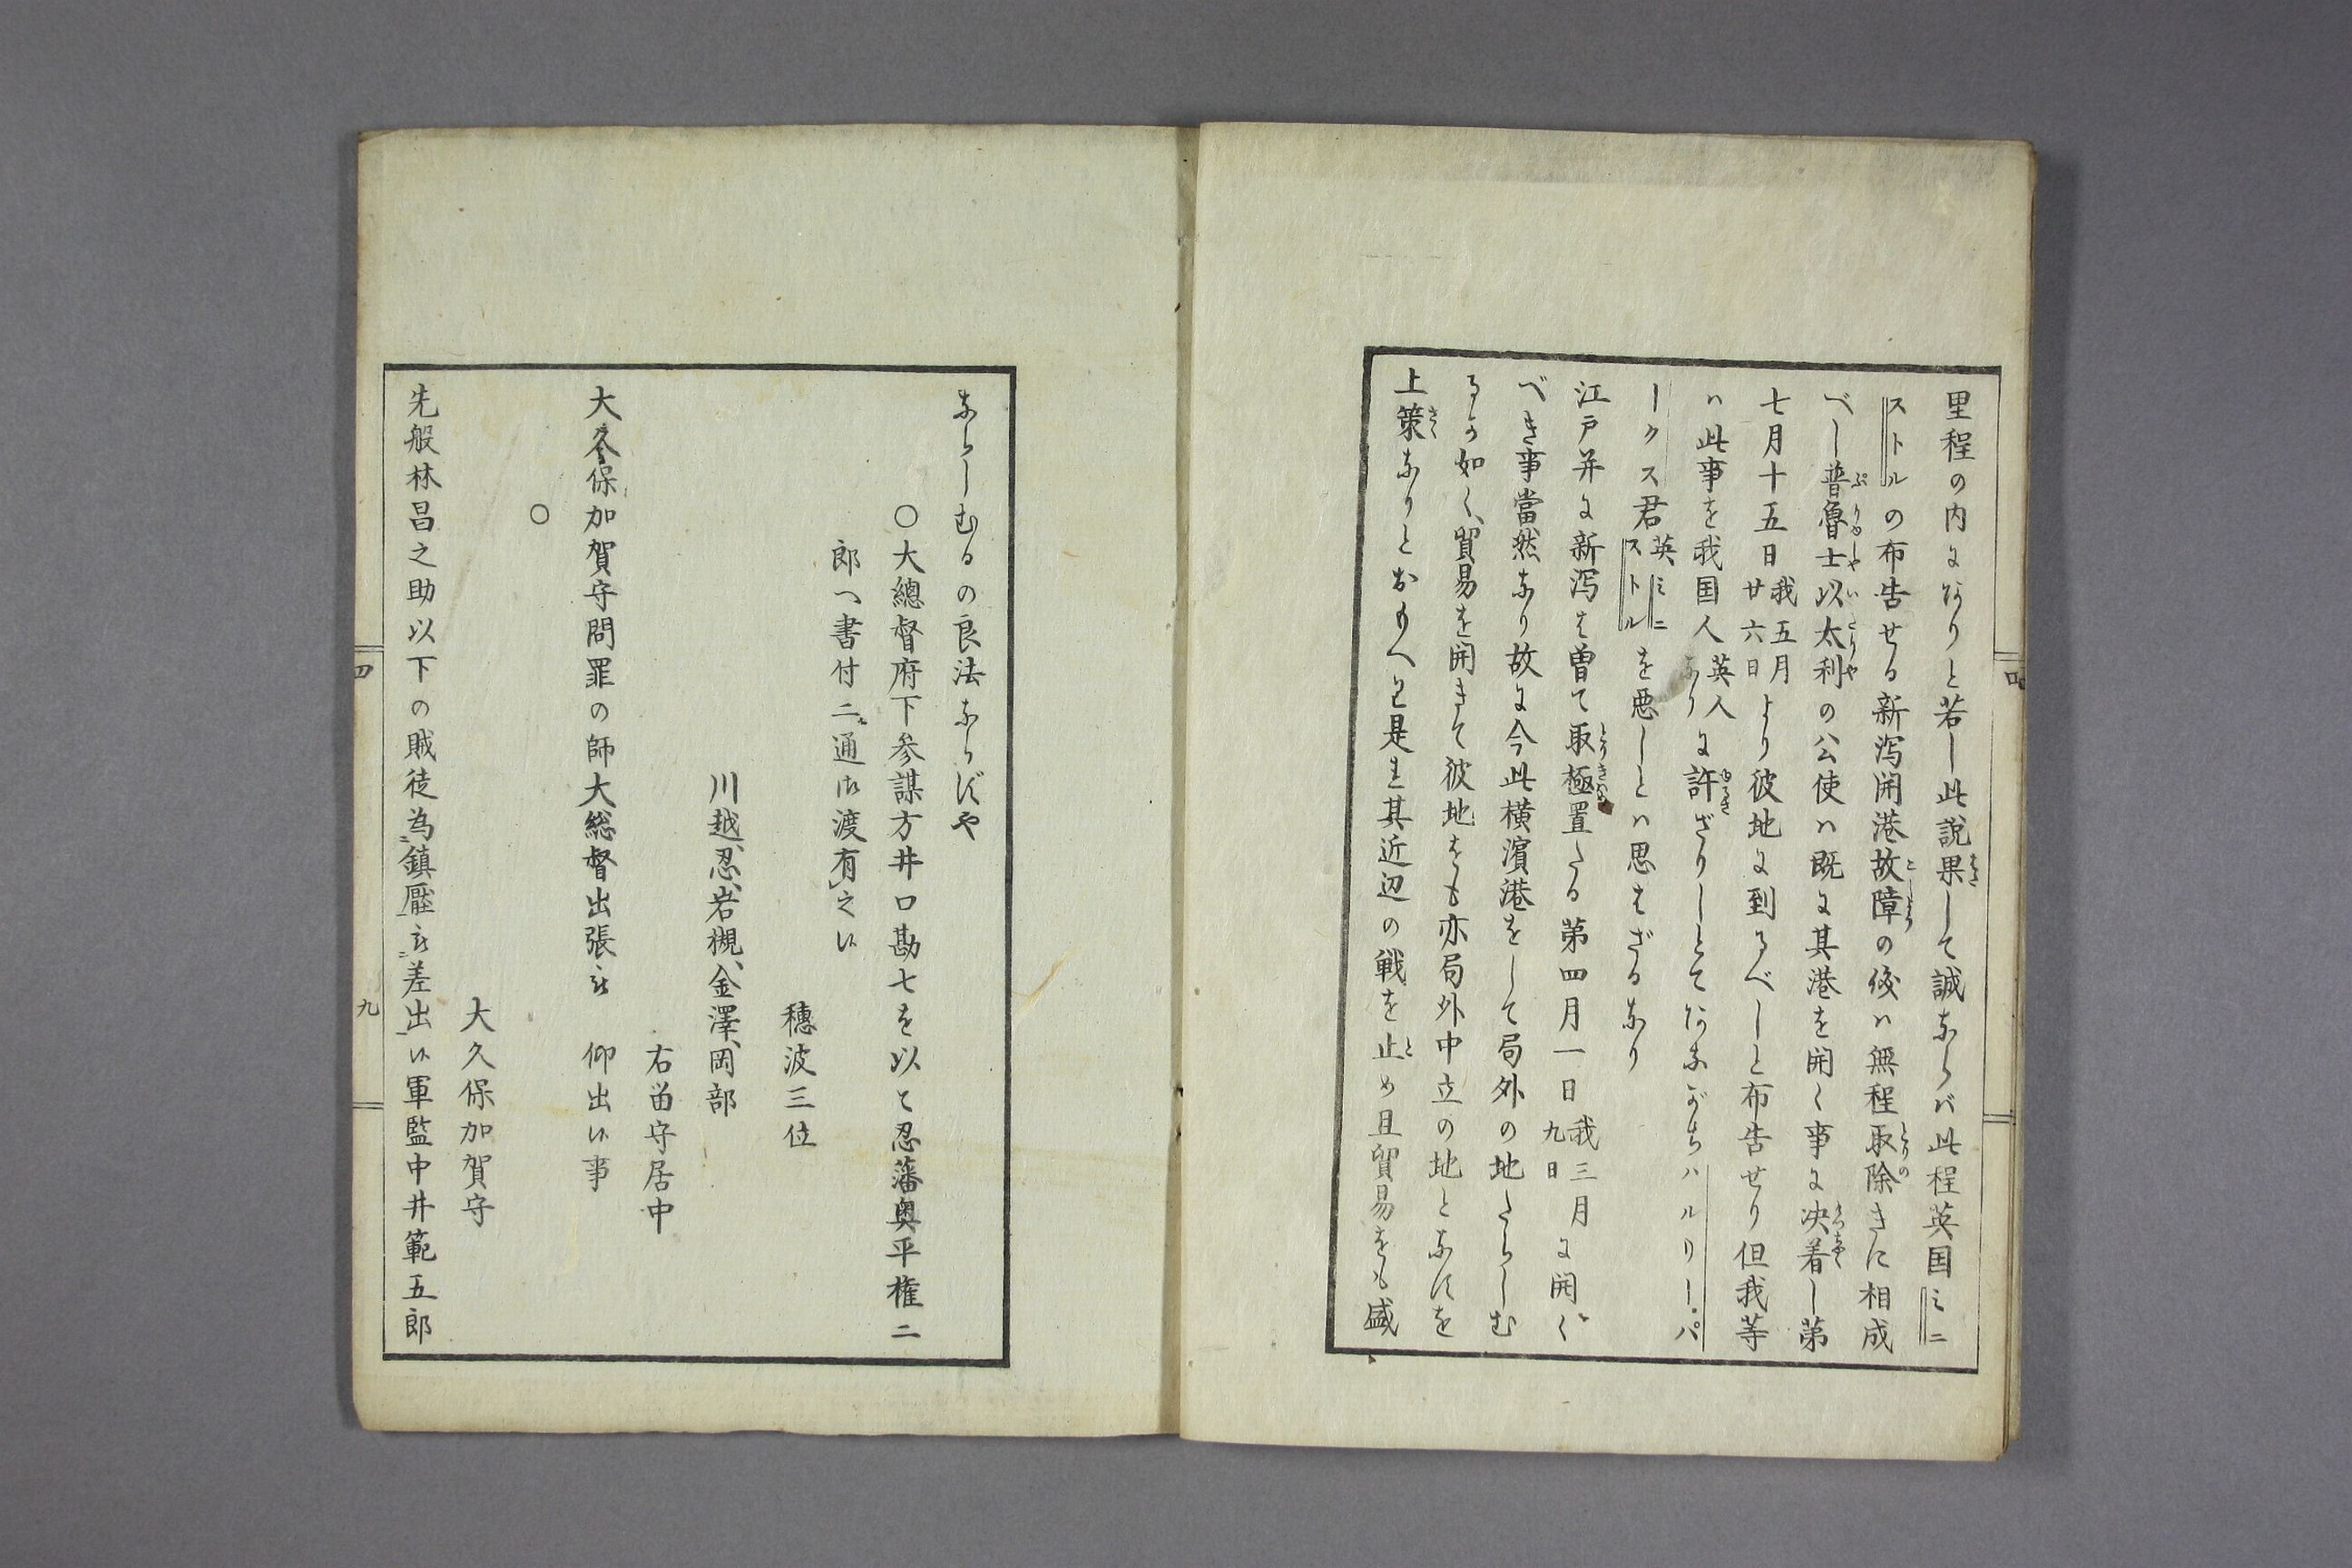 里程の内にありと若し此説果して誠ならバ此程英国ミニ
ストルの布告せる新潟開港故障の後ハ無程取除きに相成
べし普魯士以太利の公使ハ既に其港を開く事に决着し第
七月十五日我五月廿六日より彼地に到るべしと布告せり但我等
ハ此事を我国人英人なりに許ざりしとてあながちハルリー、パ
ークス君英ミニストルを悪しとハ思はざるなり
江戸并に新潟は曽て取極置たる第四月一日我三月九日に開く
べき事當然なり故に今此横濱港をして局外の地たらしむ
るが如く貿易を開きて彼地をも亦局外中立の地となすを
上策なりとおもへり是は其近辺の戦を止め且貿易をも盛
ならしむるの良法ならずや
〇大總督府下参謀方井口勘七を以て忍藩奥平権二
郎へ書付二通御渡有之候
穂波三位
川越、忍、岩槻、金澤、岡部
右留守居中
大久保加賀守問罪の師大総督出張被 仰出候事
〇
大久保加賀守
先般林昌之助以下の賊徒為鎮壓被差出候軍監中井範五郎
四
九